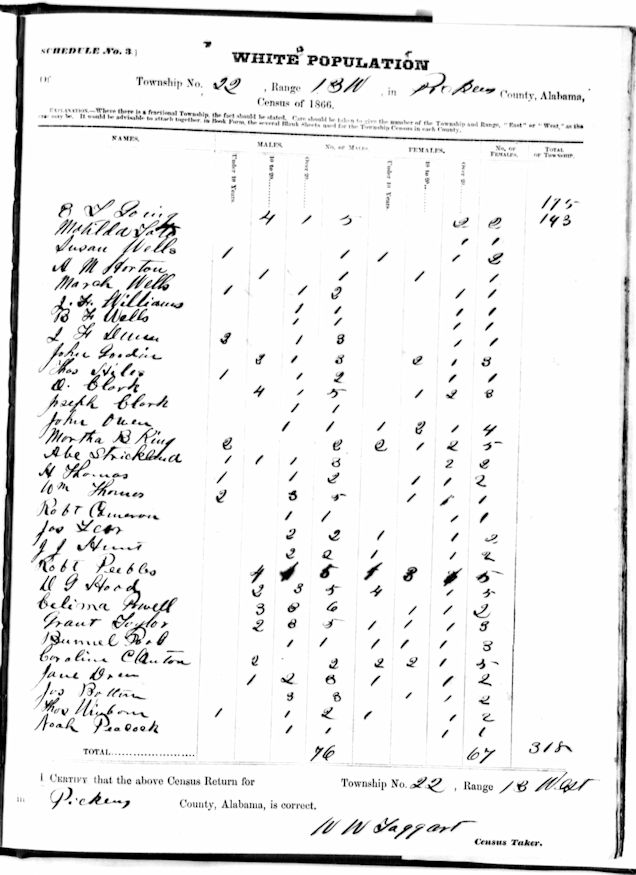 SCHEDULE No. 3.)
WHITE POPULATION
Of Township No. 22, Range 13 W, in Pickens County, Alabama,
Census of 1866.
EXPLANATION.—Where there is a fractional Township, the fact should be stated. Care should be taken to give the number of the Township and Range, "East" or "West," as the
case may be. It would be advisable to attach together, in Book Form, the several Blank Sheets used for the Township Census in each County.
NAMES. MALES. No. of Males. FEMALES. No. of Females. Total of Township.
Under 10 Years 10 to 20 Over 20 Under 10 Years 10 to 20 Over 20
175
E L Going 4 1 5 2 2 143
Matilda 1 1
Susan Wells 1 1 1 1 2
A M Horton 1 1 1 1
March Wells 1 1 2 1 1
J. H. Williams 1 1 1 1
B F Wells 1 1 1 1
J F 3 1 3 1 1
John Goodin 3 1 3 2 1 3
Thos Stiles 1 1 2 1 1
O. Clark 4 1 5 1 2 3
Joseph Clark 1 1
John Owen 1 1 1 2 1 4
Martha B King 2 2 2 1 2 5
Abe Strickland 1 1 1 3 2 2
H Thomas 1 1 2 1 1 2
Wm Thomas 2 3 5 1 1
Robt Cameron 1 1 1 1
Jas 2 2 1 1 2
J J Hunt 2 2 1 1 2
Robt Peebles 4 5 3 5
D G Hood 2 3 5 4 1 5
Celima Powell 3 3 6 1 1 2
Grant Taylor 2 3 5 1 1 1 3
1 1 1 1 1 3
Caroline Clanton 2 2 2 2 1 5
Jane Drew 1 2 3 1 1 2
Jos Bolton 3 3 1 1 2
Thos 1 1 2 1 1 2
Noah Peacock 1 1 1 1
TOTAL 76 67 318
I CERTIFY that the above Census Return for Township No. 22, Range 13 West
in Pickens County, Alabama, is correct.
W W Taggart
Census Taker.